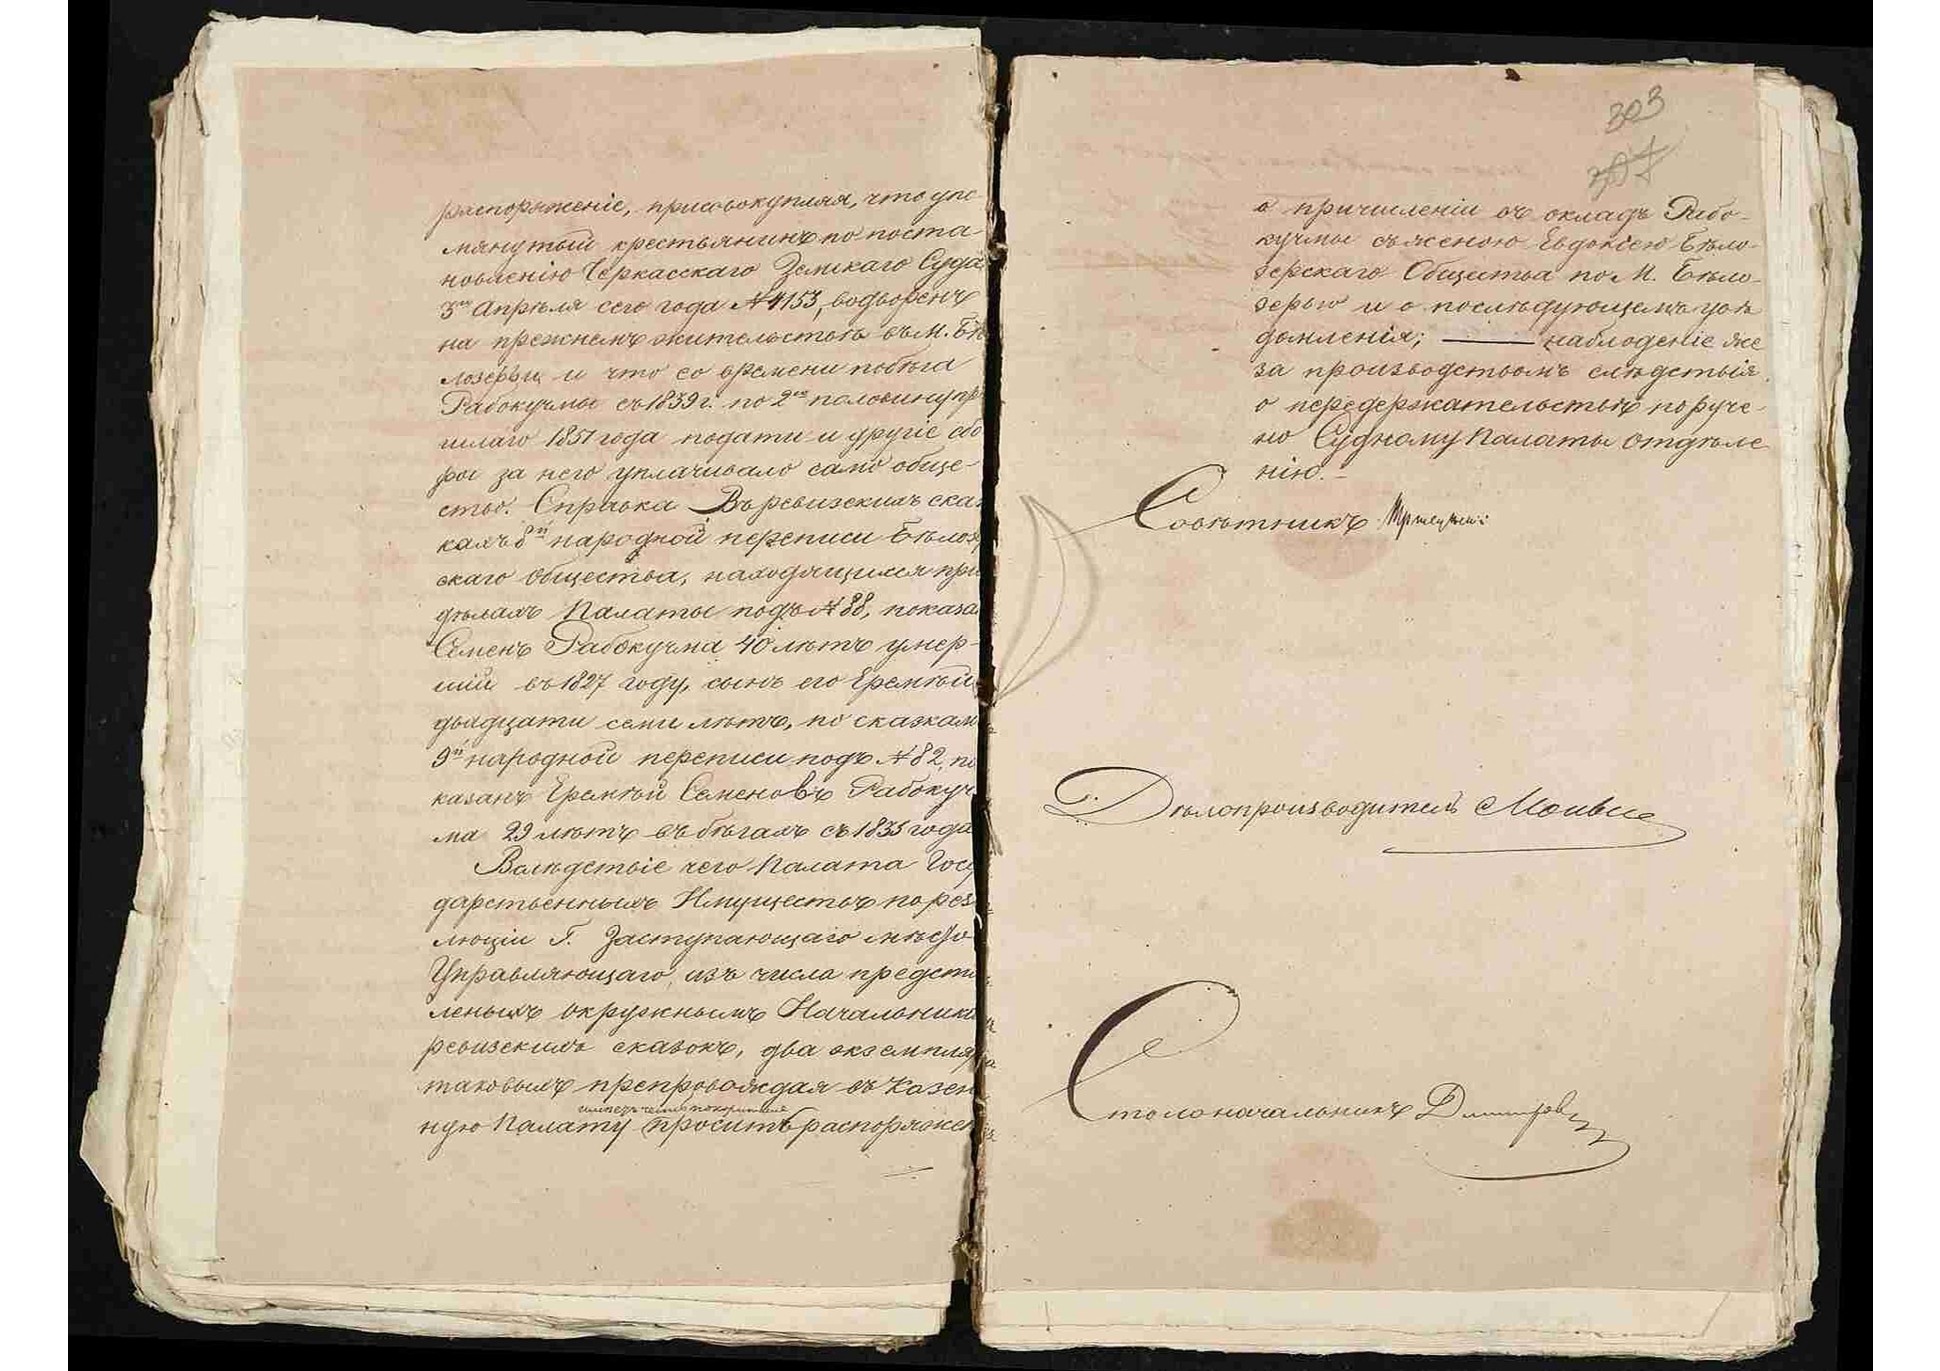 распоряженіе, присовокупляя, что упо
мянутый крестьянинъ по поста
новленію Черкасскаго Земскаго Суда
3го Апрѣля сего года №4153, водворенъ
на прежнемъ жительствѣ въ М. Бѣ
лозерьи и что со времени побѣга
Рабокучмы съ 1839 г. по 2ю половину пр
шлаго 1851 года подати и другіе сбо
ры за него уплачивало само обще-
ство. Справка Въ ревизскихъ сказ
кахъ 8й народной переписи Бѣлозер
скаго Общества, находящимся при
дѣлахъ Палаты подъ №88, показа
Семенъ Рабокучма 40 лѣтъ умер-
шій въ 1827 году, сынъ его Еремѣй
двадцати семи лѣтъ, по сказкам
9й народной переписи подъ №82, по
казанъ Еремѣй Семеновъ Рабокуч
ма 29 лѣтъ въ бѣгахъ съ 1835 года
Вслѣдствіе чего Палата Госу
дарственныхъ Имуществъ по резо
люціи Г. Заступающаго мѣсто
Управляющаго, изъ числа предста
леныхъ окружнымъ Начальника
ревизскихъ сказокъ, два экземпля
таковыхъ препровождая въ Казен
ную Палату проситъ распоряжен
303
о причисленіи въ окладъ Рабо-
кучмы съ женою Евдокіею Бѣло-
зерскаго Общества по М. Бѣло-
зерью и о послѣдующемъ увѣ
домленія; наблюденіе же
за производствомъ слѣдствія
о передержательствѣ поруче-
но Судному Палаты отдѣле
нію.-
Совѣтникъ
Дѣлопроизводитель
Столоначальникъ Дмитровъ